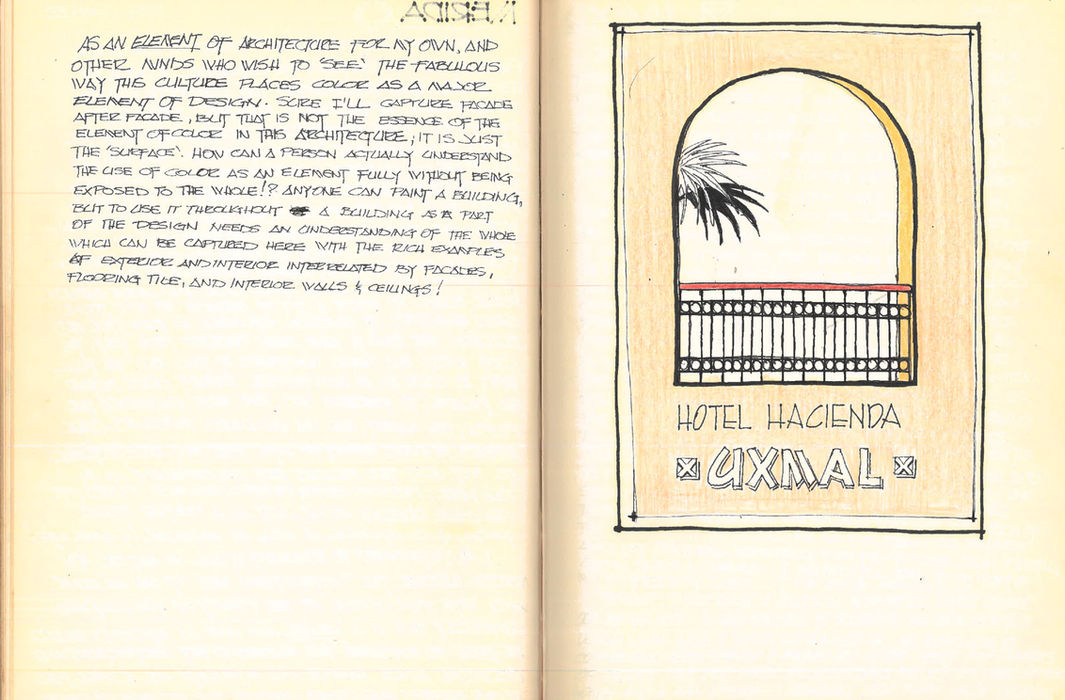 MERIDA.
AS AN ELEMENT OF ARCHITECTURE FOR MY OWN, AND
OTHER MINDS WHO WISH TO 'SEE' THE FABULOUS
WAY THIS CULTURE PLACES COLOR AS A MAJOR
ELEMENT OF DESIGN. SURE I'LL CAPTURE FACADE
AFTER FACADE, BUT THAT IS NOT THE ESSENCE OF THE
ELEMENT OF COLOR IN THIS ARCHITECTURE; IT IS JUST
THE 'SURFACE'. HOW CAN A PERSON ACTUALLY UNDERSTAND
THE USE OF COLOR AS AN ELEMENT FULLY WITHOUT BEING
EXPOSED TO THE WHOLE!? ANYONE CAN PAINT A BUILDING,
BUT TO USE IT THROUGHOUT A BUILDING AS A PART
OF THE DESIGN NEEDS AN UNDERSTANDING OF THE WHOLE
WHICH CAN BE CAPTURED HERE WITH THE RICH EXAMPLES
OF EXTERIOR AND INTERIOR INTERRELATED BY FACADES,
FLOORING TILE, AND INTERIOR WALLS & CEILINGS!
HOTEL HACIENDA
UXMAL